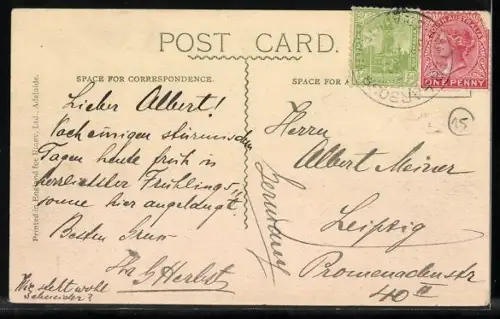 POST CARD.
SPACE FOR CORRESPONDENCE.
SPACE FOR A
Printed in England for Ltd., Adelaide.
SOUTH AUSTRALIA
ONE PENNY
15
Lieber Albert!
Nach einigen stürmischen
Tagen heute früh in
herrlichster Frühlings-
sonne hier angelangt.
Besten Gruss
Ihr G Herbst
Wie steht wohl
Schneider?
Herrn
Albert Meiner
Leipzig
Promenadenstr
40 II
Germany